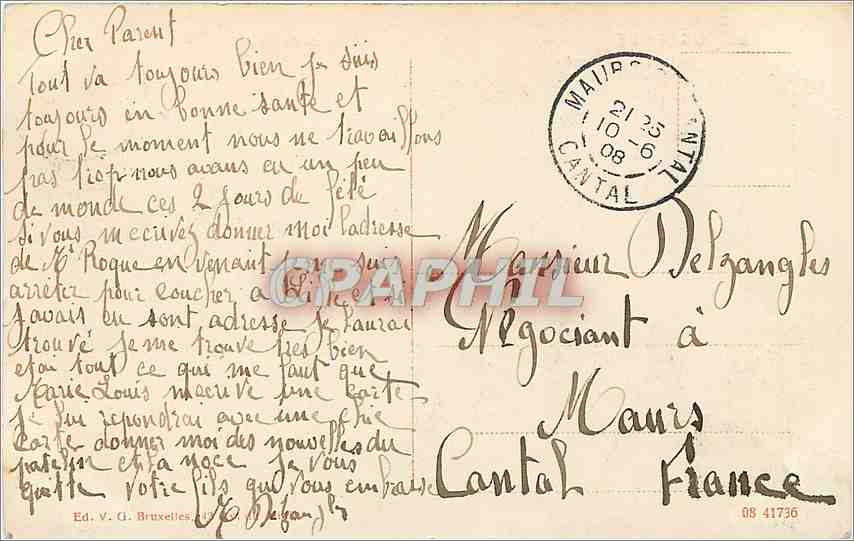 Cher Parent
Tout va toujours bien je suis
toujours en bonne santé et
pour le moment nous ne travaillons
pas trop nous avans eu un peu
de monde ces 2 jours de fété
si vous m'ecrivez donner moi l'adresse
de Mr Roque en venant je me suis
arréter pour coucher a Lille et si
j'avais eu sont adresse je l'aurai
trouvé je me trouve tres bien
et j'ai tout ce qui me faut que
Marie Louis m'ecrive une carte
je lui repondrai avec une chie
carte donner moi des nouvelles du
patelin et la noce je vous
quitte votre fils qui vous embrasse
Ed. V. G. Bruxelles
MAURS CANTAL
21 25
10 - 6
08
CANTAL
Monsieur Delzangles
Négociant à
Maurs
Cantal France
08 41736
CPAPHIL